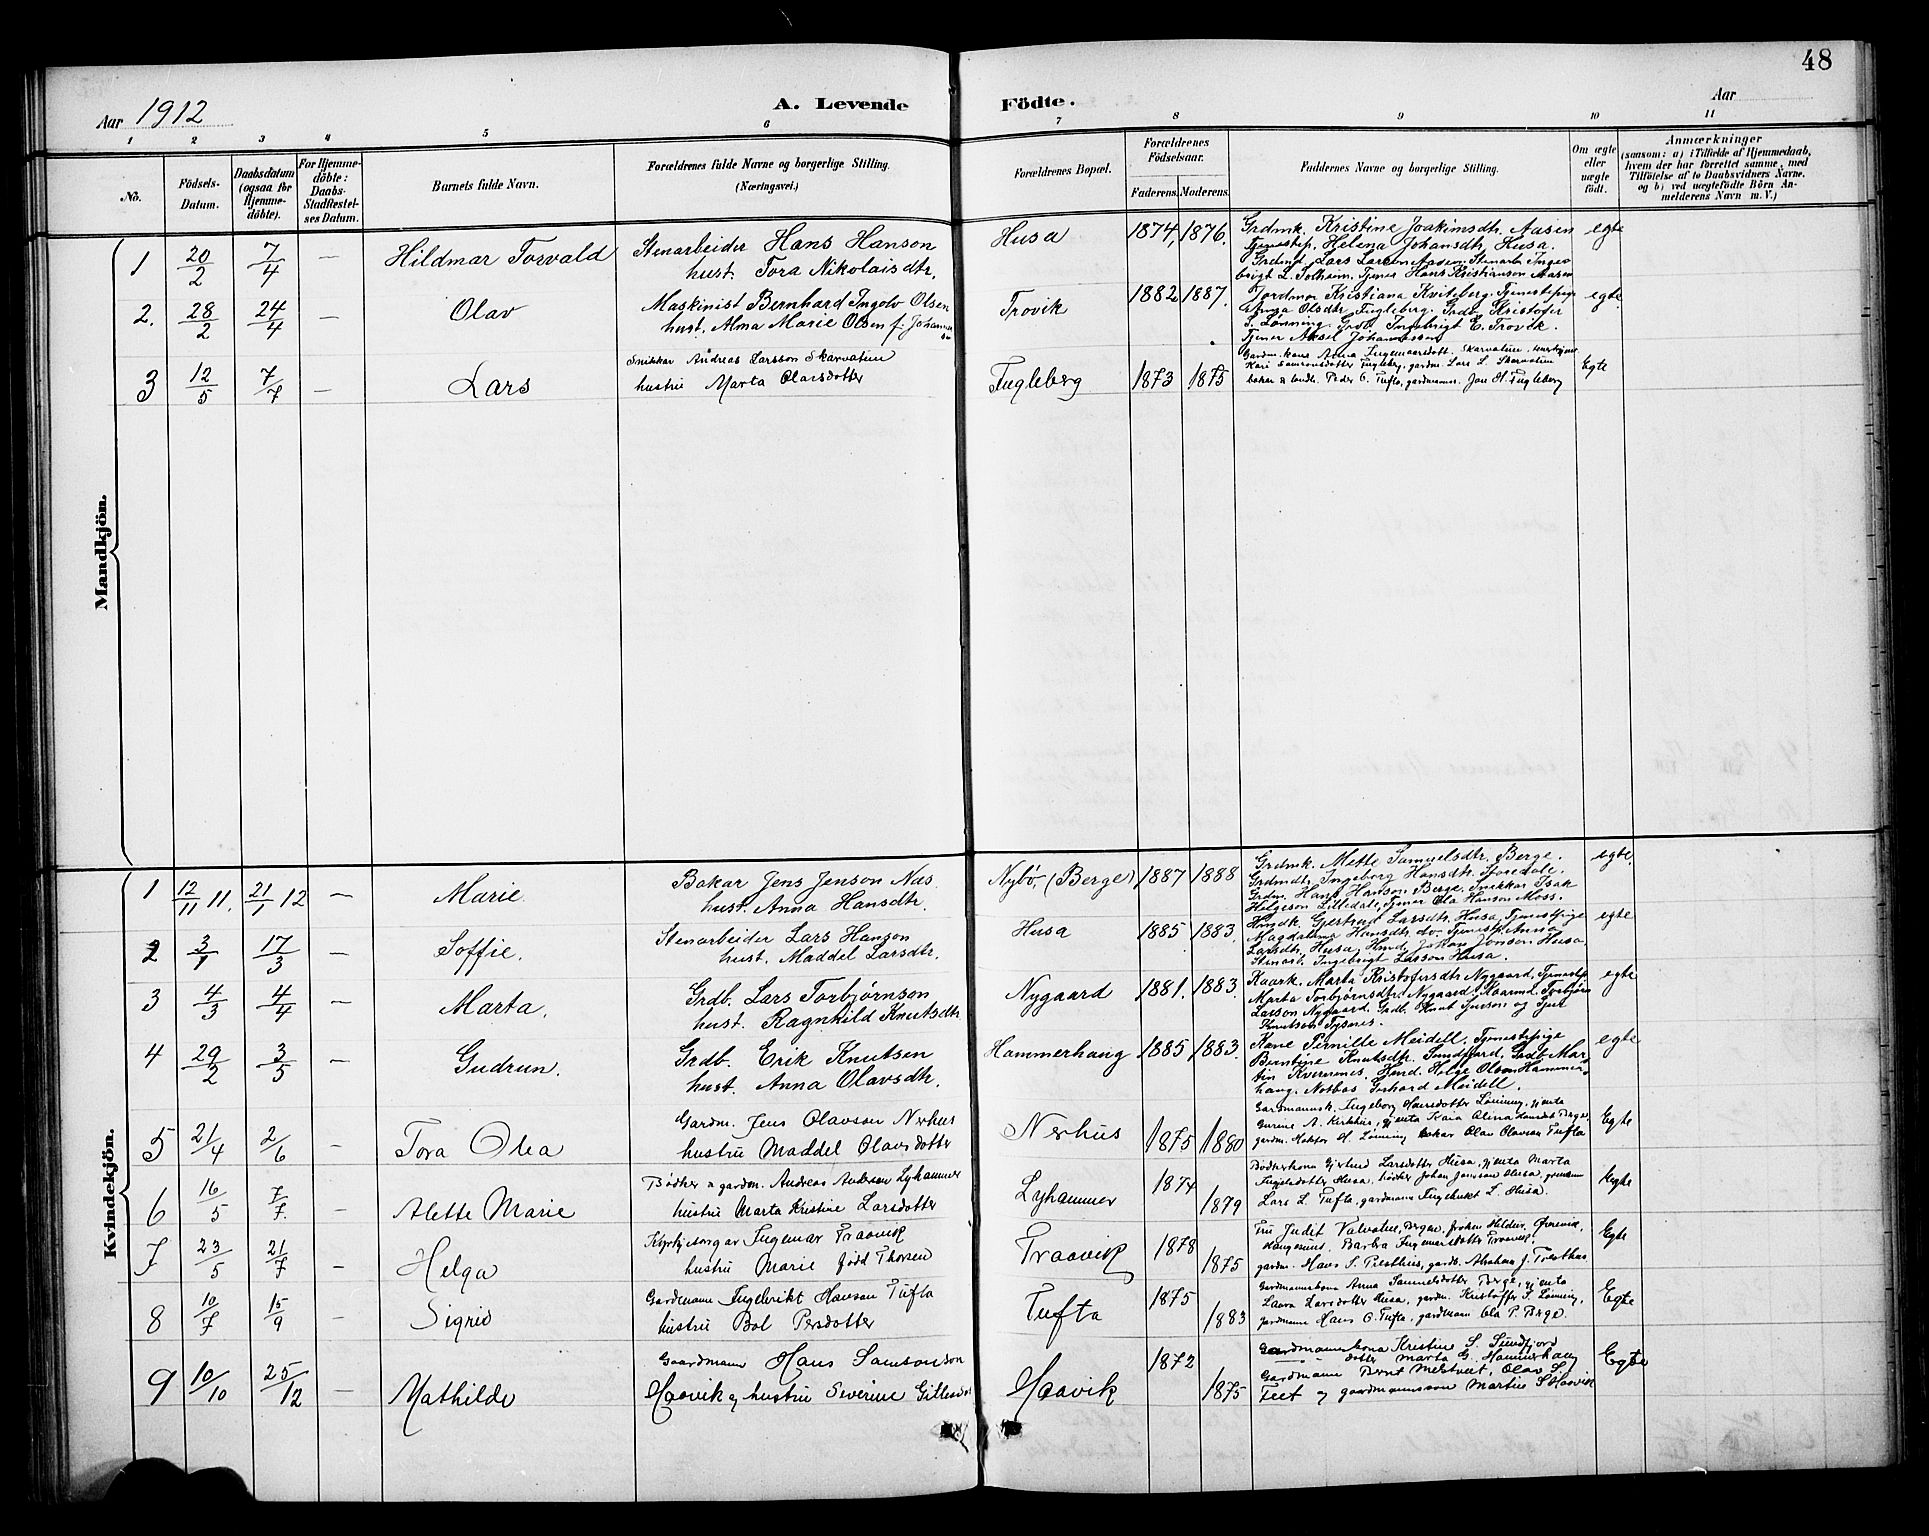 48
Aar 1912
A. Levende Födte.
Aar
1 2 3 4 5 6 7 8 9 10 11
No.
Födsels-Datum.
Daabsdatum (ogsaa for Hjemme-döbte).
For Hjemme-döbte: Daabs-Stadfestel-ses Datum.
Barnets fulde Navn.
Forældrenes fulde Navne og borgerlige Stilling. (Næringsvei.)
Forældrenes Bopæl.
Forældrenes Födselsaar.
Faderens. Moderens.
Faddernes Navne og borgerlige Stilling.
Om ægte eller uægte födt.
Anmærkninger
(saasom: a) i Tilfælde af Hjemmedaab,
hvem der har forrettet samme, med
Tilföielse af to Daabsvidners Navne,
og b) ved uægtefödte Börn An-
melderens Navn m. V.)
Mandkjön.
1 20/2 7/4 — Hildmar Torvald
Stenarbeider Hans Hanson
hust. Tora Nikolaisdtr.
Husa 1874, 1876.
Grdmk. Kristine Joakimsdtr. Aasen
Tjenestep. Helena Johansdtr. Husa.
Grdmd. Lars Larsen Aasen. Stenarb. Inge-
brigt L. Solheim. Tjener Hans Kristianson Aasen
egte
2. 28/2 24/4 — Olav
Maskinist Bernhard Ingolv Olsen
hust. Alma Marie Olsen f. Johannes
Trovik 1882 1887.
Jordmor Kristiana Kviteberg. Tjenestepige
Olsdtr. Fugleberg. Grdb. Kristofer
S. Lønning. Grdb. Ingebrigt E. Trovik.
Tjener Aksel Johannessen
egte
3 12/5 7/7 — Lars
Snikkar Andreas Larsson Skarvatun
hustru Marta Olarsdotter
Fugleberg 1873 1875
Gardm. kona Anna Ingemarsdott. Skarvatun,
Kari Samsonsdotter Fugleberg, gardm. Lars L. Skarvatun
bakar & landh. Peder O. Tufta, gardmann. Jon H. Fugleberg
Egte
Kvindekjön.
1 12/11 11. 21/1 12 — Marie.
Bakar Jens Jenson Nas
hust. Anna Hansdtr.
Nybö, (Berge) 1887 1888
Grdmk. Mette Samuelsdtr. Berge.
Grdmdtr. Ingeborg Hansdtr. Sporedale.
Grdm. Hans Hanson Berge. Snikkar Isak
Helgeson Lilledale, Tjener Ola Hanson Moss.
egte.
2 3/1 17/3 — Soffie.
Stenarbeider Lars Hanson
hust. Maddel Larsdtr.
Husa 1885 1883.
Hmdk. Gjertrud Larsdtr. Husa, Tjenestpige
Magdalena Hansdtr. do. Tjenestp. Anna
Larsdtr. Husa, Hmd. Johan Jonson Husa,
Stenarb. Ingebrigt Larsson Husa.
egte
3 4/3 4/4 — Marta.
Grdb. Lars Torbjørnson
hust. Ragnhild Knutsdtr.
Nygaard 1881. 1883.
Kaark. Marta Kristofersdtr. Nygaard, Tjenestp.
Marta Torbjørnsdtr. Nygaard. Kaarmd. Torbjørn
Larson Nygaard. Grdb. Knut Tjerson og Sjur
Knutson Tysnes.
egte
4 29/2 3/5 — Gudrun.
Grdb. Erik Knutsen
hust. Anna Olavsdtr.
Hammerhaug 1885 1883.
Kone Pernille Meidell, Tjenestepige
Berntine Knutsdtr. Sundfjord, Grdb. Mar-
tin Kvernenes, Hmd. Helge Olson Hammer-
haug. Notbas Gerhard Meidell.
egte
5 21/4 2/6 — Tora Olea
Gardm. Jens Olavson Nerhus
hustru Maddel Olavsdotter
Nerhus 1875 1880
Gardmannsk. Ingeborg Hansdotter Lönning, gjenta
Gurine A. Kirkhus, gjenta Kaia Olina Hansdt Berge,
gardm. H. Lönning bakar Olav Olavson Tufta
Egte
6 16/5 7/7. — Alette Marie
Bödker & gardm. Andreas Anderson Lyhammer
hustru Marta Kristine Larsdotter
Lyhammer 1874 1879
Bödkerkona Gjertrud Larsdotter Husa, gjenta Marta
Husa, bödker Johan Jonsson Husa,
Lars L. Tufta, gardmann Ingebrikt L. Husa.
Egte
7 23/5 21/7 — Helga
Kyrkjesongar Ingemar Traavik
hustru Marie född Thorsen
Traavik 1878 1875
Fru Judit Valvatne, Bergen, fröken
Haugesund. Barbra Ingemarsdotter Traavik,
gardm. Hans S. Presthus, gardb. Abraham J. Presthus
Egte
8 10/7 15/9 — Sigrid
Gardmann Ingebrikt Hansson Tufta
hustru Bol Persdotter
Tufta 1875 1883
Gardmannskona Anna Sammelsdotter Berge, gjenta
Laura Larsdotter Husa, gardm. Kristoffer S. Lönning,
gardmann Hans O. Tufta, gardmann Ola P. Berge.
Egte
9 10/10 25/12 — Mathilde
Gaardmann Hans Samsonson
Haavik og hustru Severine Gillesdot
Haavik 1872 1875
Gaardmannskona Kristine S. Sundfjord
dotter Marta G. Hammerhaug
Gardmann Bernt Melstveit, Olav S.
Teet og gardmannsson Martin S Haavik
Egte